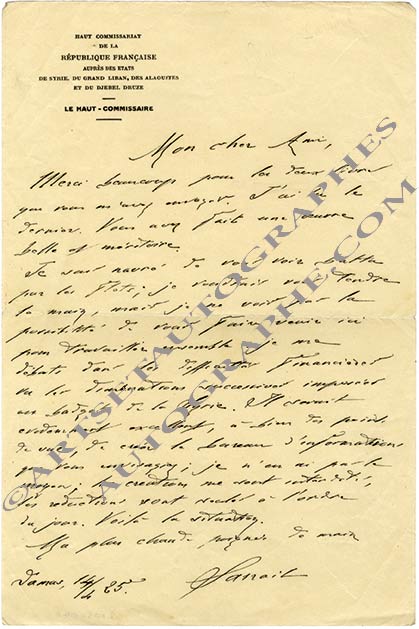 HAUT COMMISSARIAT
DE LA
RÉPUBLIQUE FRANÇAISE
AUPRÈS DES ETATS
DE SYRIE, DU GRAND LIBAN, DES ALAOUITES
ET DU DJEBEL DRUZE
LE HAUT-COMMISSAIRE
Mon cher Ami,
Merci beaucoup pour les deux livres
que vous m'avez envoyés. J'ai lu le
dernier. Vous avez fait une œuvre
belle et méritoire.
Je suis navré de vous voir battu
par les flots; je voudrais vous tendre
la main, mais je ne vois pas la
possibilité de vous faire venir ici
pour travailler ensemble. Je me
débats dans les difficultés financières
vu les diminutions successives imposées
au budget de la Syrie. Il serait
évidemment excellent, à bien des points
de vue, de créer le bureau d'informations
que vous envisagez; je n'en ai pas le
moyen; les créations me sont interdites,
les réductions sont seules à l'ordre
du jour. Voilà la situation.
Ma plus chaude poignée de main
Damas, 14/4 25.
Sarrail
©ARTSETAUTOGRAPHES
AUTOGRAPHE.COM